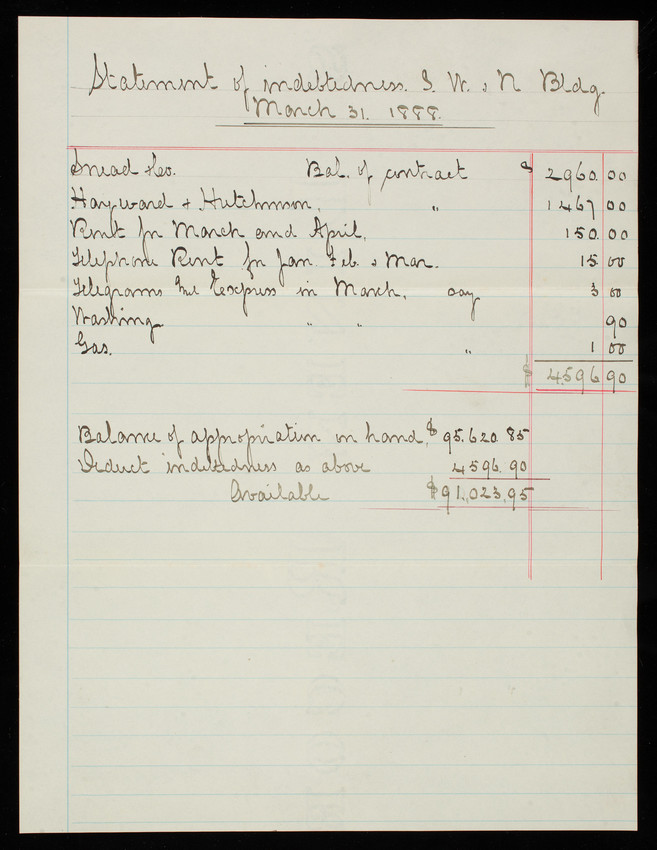 Statement of indebtedness. S. W. & N Bldg.
March 31. 1888.
Snead & Co. Bal. of contract $ 2960.00
Hayward & Hutchinson, " 1467 00
Rent for March and April, 150.00
Telephone Rent for Jan Feb. & Mar. 15 00
Telegrams and Express in March, say 3 00
Washing " " 90
Gas. " 1 00
$ 4596 90
Balance of appropriation on hand, $ 95.620.85
Deduct indebtedness as above 4596.90
Available $ 91,023,95